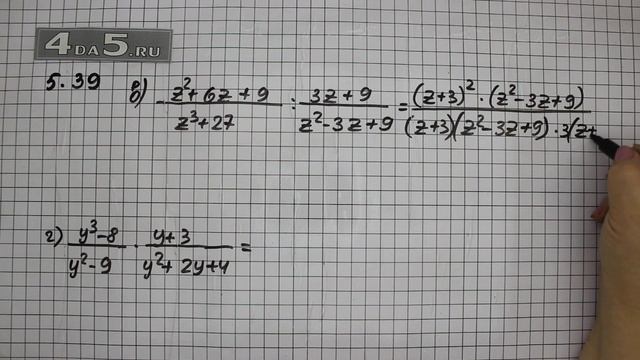 4DA5.RU
5.39 б) - (z²+6z+9)/(z³+27) : (3z+9)/(z²-3z+9) = ((z+3)²·(z²-3z+9))/((z+3)(z²-3z+9)·3(z+
г) (y³-8)/(y²-9) · (y+3)/(y²+2y+4) =